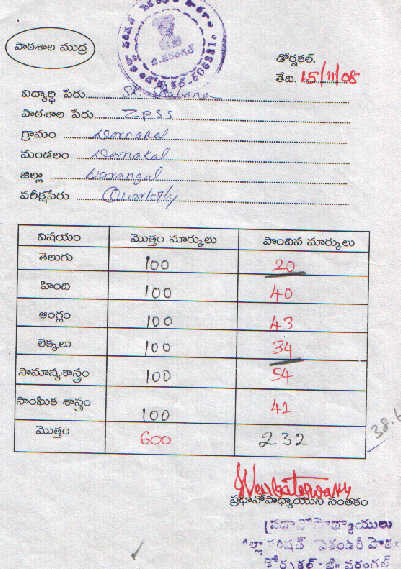 పాఠశాల ముద్ర
డోర్నకల్.
తేది. 15/11/08
విద్యార్థి పేరు
పాఠశాల పేరు ZPSS
గ్రామం Dornakal
మండలం Dornakal
జిల్లా Warangal
పరీక్షపేరు Quarterly
విషయం మొత్తం మార్కులు పొందిన మార్కులు
తెలుగు 100 20
హింది 100 40
ఆంగ్లం 100 43
లెక్కలు 100 34
సామాన్యశాస్త్రం 100 54
సాంఘిక శాస్త్రం 100 41
మొత్తం 600 232
38.6
ప్రధానోపాధ్యాయుని సంతకం
ప్రధానోపాధ్యాయులు
జిల్లా పరిషత్ సెకండరీ పాఠ
డోర్నకల్ - జి. వరంగల్